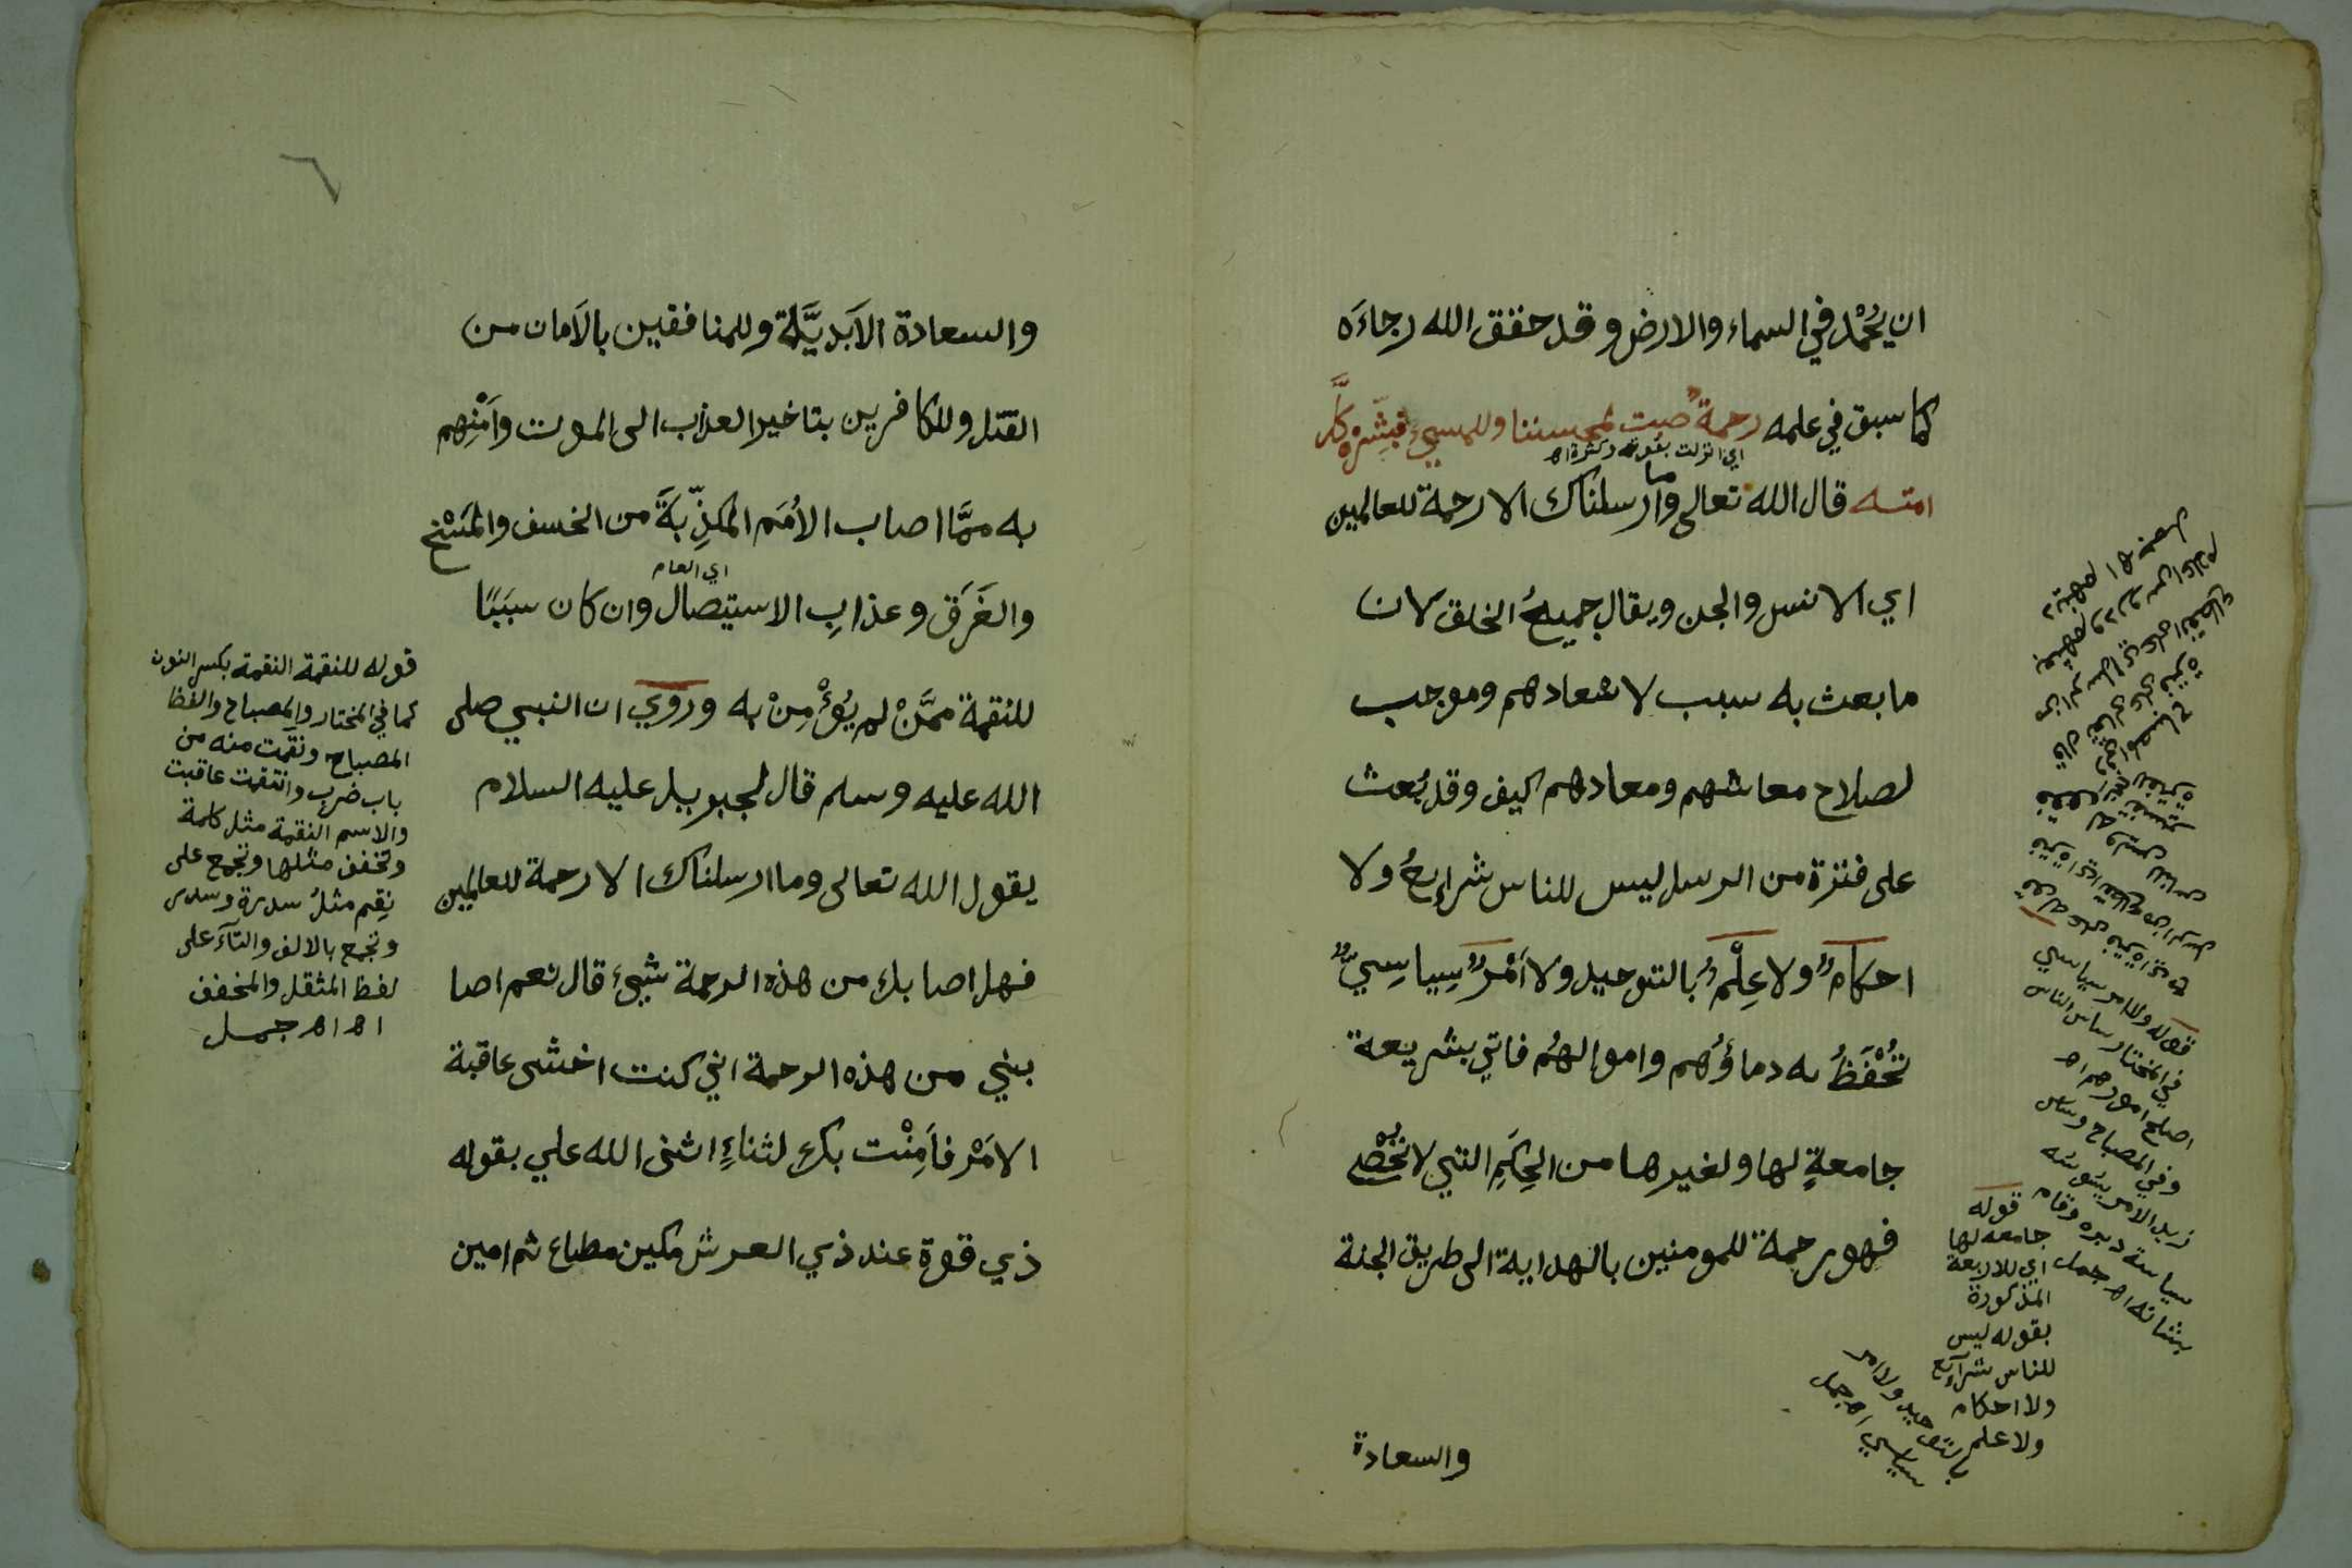 ان يُحْمد في السماء والارض وقد حقق الله رجاءَه
كما سبق في علمه رحمة صبت لمحسننا وللمسيئ فبشّره كلَّ
اي انزلت بقوة وكثرة اه
امته قال الله تعالى وما ارسلناك الا رحمة للعالمين
اي الانس والجن ويقال جميعُ الخلق لان
ما بعث به سبب لاسعادهم وموجب
لصلاح معاشهم ومعادهم كيف وقد بُعث
على فترة من الرسل ليس للناس شرايعُ ولا
احكامٌ ولا عِلْمٌ بالتوحيد ولا اَمْرٌ سِياسِيٌّ
تُحْفَظُ به دماؤُهم واموالهُم فاتي بشريعة
جامعةٍ لها ولغيرها من الحِكَمِ التي لا تُحْصى
فهو رحمة للمومنين بالهداية الى طريق الجنة
والسعادة
قوله ولا امر سياسي
في المختار ساس الناس
اصلح امورهم اه
وفي المصباح وساس
زيد الامر يسُوسُه
سياسة دبره وقام
بشانه اه جمل
قوله
جامعه لها
اي للاربعة
المذكورة
بقوله ليس
للناس شرايع
ولا احكام
ولا علم
بالتوحيد ولا امر
سياسي اه جمل
٦
والسعادة الاَبديَّة وللمنافقين بالاَمان من
القتل وللكافرين بتاخير العذاب الى الموت واَمْنِهم
به ممَّا اصاب الاُمَم المكذِّبَةَ من الخسف والمَسْخ
اي العام
والغَرَق وعذابِ الاستيصال وان كان سبَبًا
للنقمة ممَّنْ لم يُؤْمِنْ به ورُوي ان النبي صلى
الله عليه وسلم قال لجبريل عليه السلام
يقول الله تعالى وما ارسلناك الا رحمة للعالمين
فهل اصابك من هذه الرحمة شيئ قال نعم اصا
بني من هذه الرحمة اني كنت اخشى عاقبة
الاَمْر فاَمِنْت بك لثناءٍ اثنى الله علي بقوله
ذي قوة عند ذي العرش مكين مطاع ثم امين
قوله للنقمة النقمة بكسر النون
كما في المختار والمصباح ولفظ
المصباح ونقمت منه من
باب ضرب وانتقمت عاقبت
والاسم النقمة مثل كلمة
وتخفف مثلها وتجمع على
نِقم مثلُ سدرة وسدر
وتجمع بالالف والتآء على
لفظ المثقل والمخفف
اه اه جمل